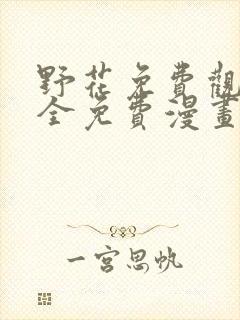 野花免費觀
全免費漫畫
一宮思帆